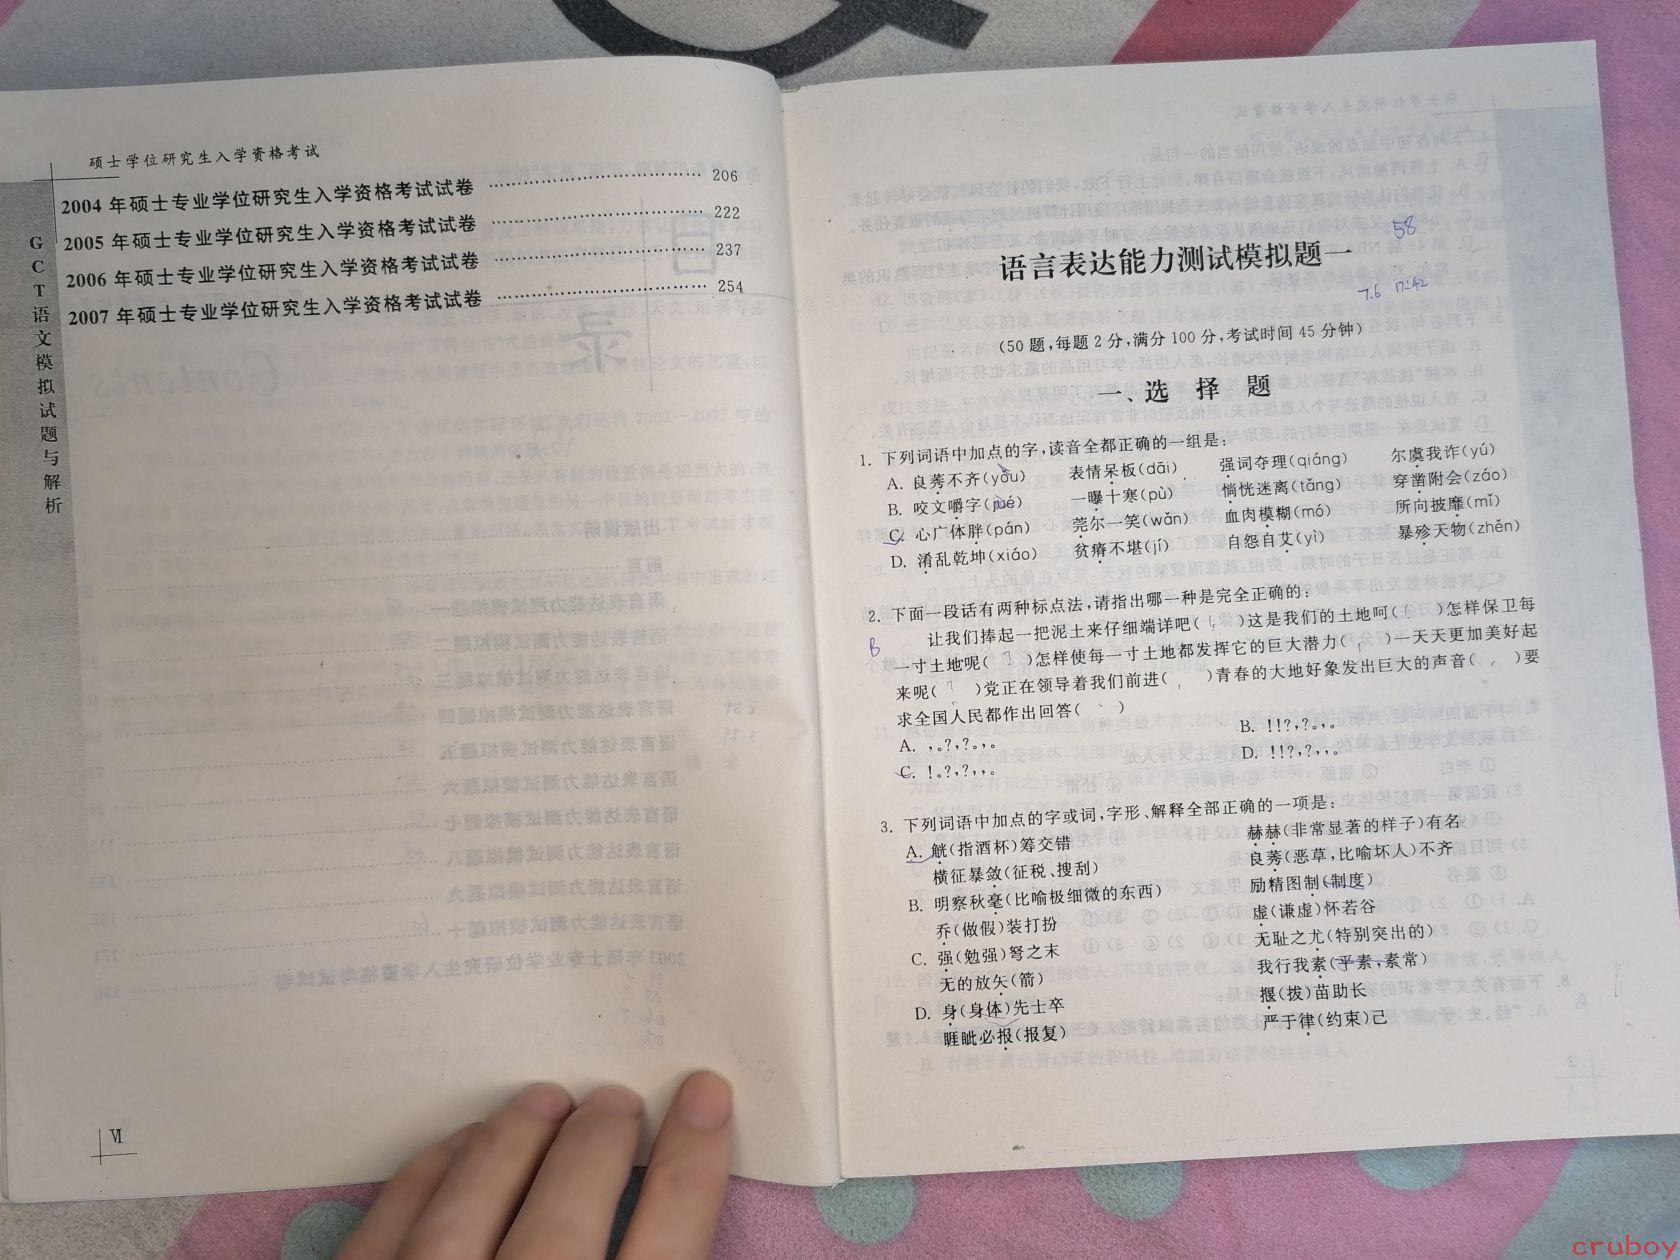 硕士学位研究生入学资格考试
2004 年硕士专业学位研究生入学资格考试试卷 …………………… 206
2005 年硕士专业学位研究生入学资格考试试卷 …………………… 222
2006 年硕士专业学位研究生入学资格考试试卷 …………………… 237
2007 年硕士专业学位研究生入学资格考试试卷 …………………… 254
GCT语文模拟试题与解析
Ⅵ
58
语言表达能力测试模拟题一
7.6 17:42
(50 题,每题 2 分,满分 100 分,考试时间 45 分钟)
一、选 择 题
1. 下列词语中加点的字,读音全都正确的一组是:
A. 良莠不齐(yǒu) 表情呆板(dāi) 强词夺理(qiáng) 尔虞我诈(yú)
B. 咬文嚼字(jué) 一曝十寒(pù) 惝恍迷离(tǎng) 穿凿附会(záo)
C. 心广体胖(pán) 莞尔一笑(wǎn) 血肉模糊(mó) 所向披靡(mǐ)
D. 淆乱乾坤(xiáo) 贫瘠不堪(jí) 自怨自艾(yì) 暴殄天物(zhěn)
2. 下面一段话有两种标点法,请指出哪一种是完全正确的:
B
让我们捧起一把泥土来仔细端详吧( )这是我们的土地呵( )怎样保卫每
一寸土地呢( )怎样使每一寸土地都发挥它的巨大潜力( )一天天更加美好起
来呢( )党正在领导着我们前进( )青春的大地好象发出巨大的声音( )要
求全国人民都作出回答( )
A. ,。?,?。,。 B. !!?,?。,。
C. !。?,?,,。 D. !!?,?,,。
3. 下列词语中加点的字或词,字形、解释全部正确的一项是:
A. 觥(指酒杯)筹交错 赫赫(非常显著的样子)有名
横征暴敛(征税、搜刮) 良莠(恶草,比喻坏人)不齐
B. 明察秋毫(比喻极细微的东西) 励精图制(制度)
乔(做假)装打扮 虚(谦虚)怀若谷
C. 强(勉强)弩之末 无耻之尤(特别突出的)
无的放矢(箭) 我行我素(平素,素常)
D. 身(身体)先士卒 揠(拔)苗助长
睚眦必报(报复) 严于律(约束)己
cruboy